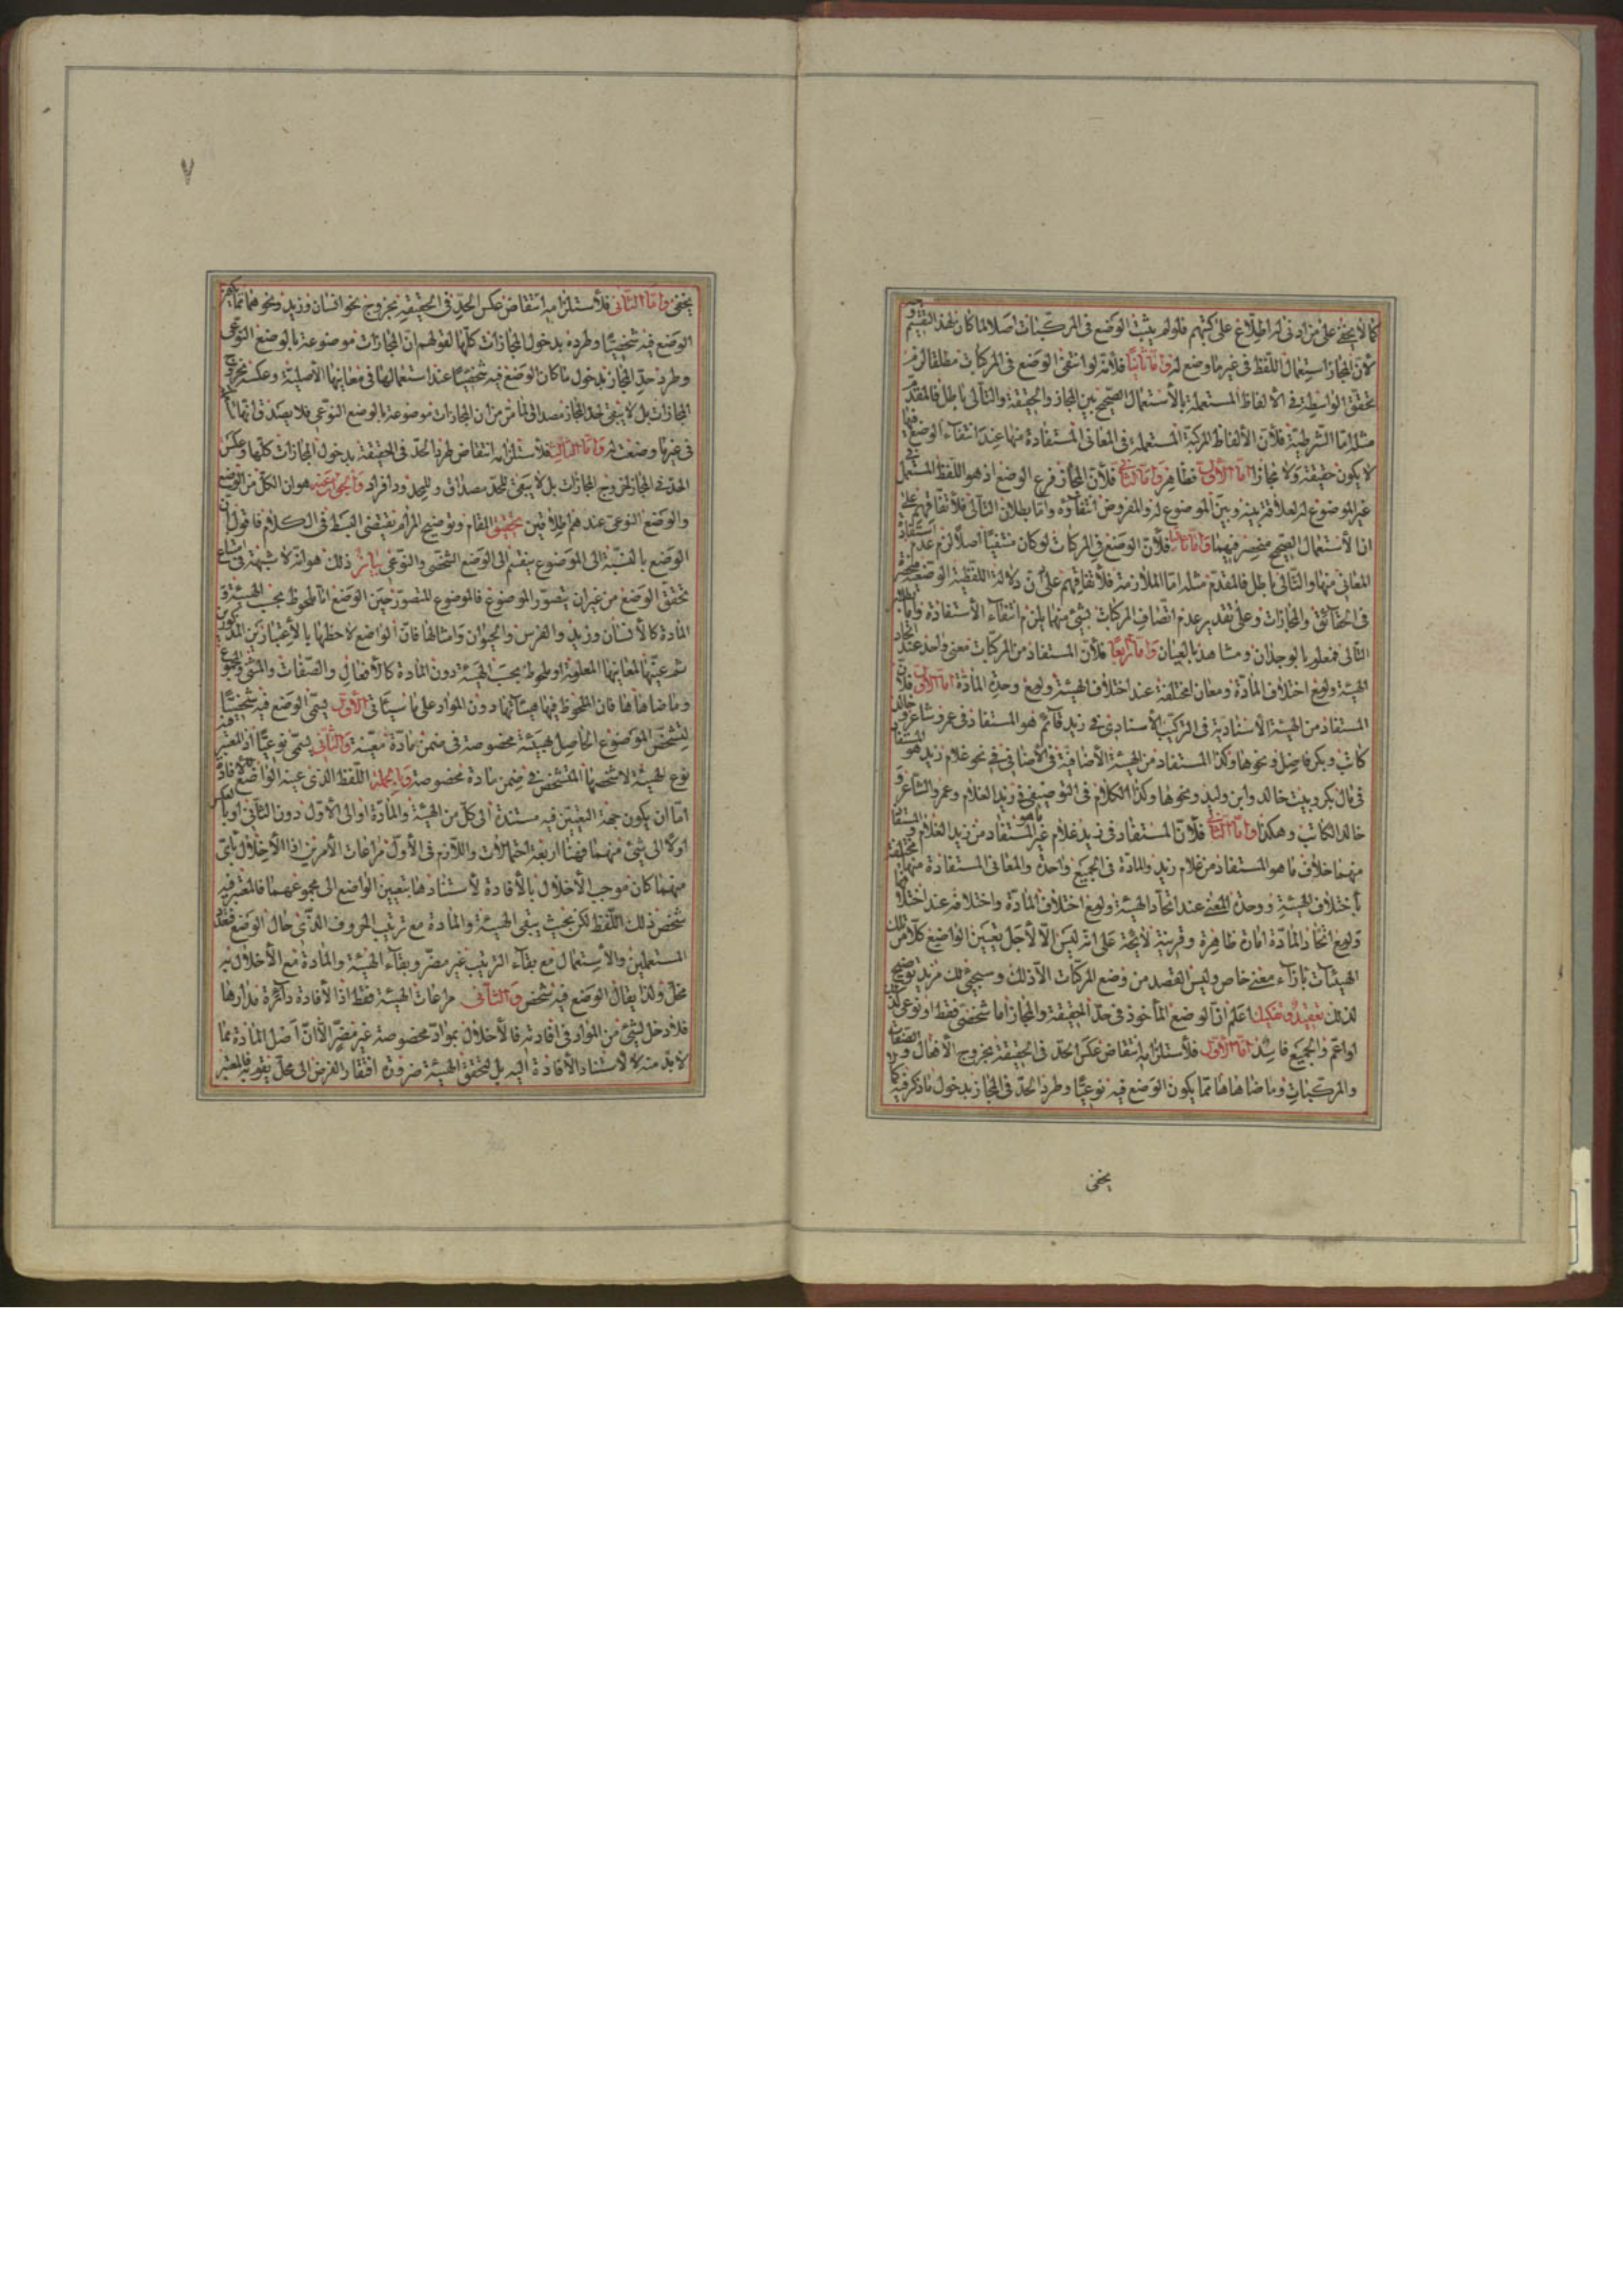 كما لا يخفى على من ادنى له اطلاع على كتبهم فلو لم يثبت الوضع فى المركبات اصلا لما كان لهذا التقسيم وجه
لأن المجاز استعمال اللفظ فى غير ما وضع له واما ثانيا فلانه لو انتفى الوضع فى المركبات مطلقا لزم
تحقق الواسطة فى الالفاظ المستعملة بالأستعمال الصحيح بين المجاز والحقيقة والتالى باطل فالمقدم
مثله اما الشرطية فلأن الألفاظ المركبة المستعملة فى المعانى المستفادة منها عند انتفاء الوضع فيها
لا يكون حقيقة ولا مجازا اما الأول فظاهر واما الثانى فلأن المجاز فرع الوضع اذ هو اللفظ المستعمل فى
غير الموضوع له لعلاقة بينه وبين الموضوع له والمفروض انتفاؤه واما بطلان التالى فلأتفاقهم على
ان الأستعمال الصحيح منحصر فيهما واما ثالثا فلأن الوضع فى المركبات لو كان منتفيا اصلا لزم عدم استفادة
المعانى منها والتالى باطل فالمقدم مثله اما الملازمة فلأتفاقهم على ان دلالة اللفظية الوضعية منحصر
فى الحقائق والمجازات وعلى تقدير عدم اتصاف المركبات بشئ منها يلزم انتفاء الأستفادة واما بطلان
التالى فمعلوم بالوجدان ومشاهد بالعيان واما رابعا فلأن المستفاد من المركبات معنى واحد عند اتحاد
الهيئة ولو مع اختلاف المادة ومعان مختلفة عند اختلاف الهيئة ولو مع وحدة المادة اما الأول فلأن
المستفاد من الهيئة الأسنادية فى التركيب الأسنادى فى زيد قائم هو المستفاد فى عمرو شاعر وخالد
كاتب وبكر فاضل ونحوها وكذا المستفاد من الهيئة الأضافية فى الأضافى فى نحو غلام زيد هو المستفاد
فى مال بكر وبيت خالد وابن وليد ونحوها وكذا الكلام فى التوصيفى فى زيد الغلام وعمرو الشاعر و
خالد الكاتب وهكذا واما الثانى فلأن المستفاد فى زيد غلام غير ما هو المستفاد من زيد الغلام والمستفاد
منهما خلاف ما هو المستفاد من غلام زيد والمادة فى الجميع واحدة والمعانى المستفادة منها مختلفة
بأختلاف الهيئة ووحدة المعنى عند اتحاد الهيئة ولو مع اختلاف المادة واختلافه عند اختلافها
ولو مع اتحاد المادة امارة ظاهرة وقرينة لايحة على انه ليس الا لأجل تعيين الواضع كلا من تلك
الهيئات بازاء معنى خاص وليس القصد من وضع المركبات الا ذلك وسيجئ لك مزيد توضيح
لذلك تعقيد وتفكيك اعلم ان الوضع المأخوذ فى حد الحقيقة والمجاز اما شخصى فقط او نوعى كذلك
او اعم والجميع فاسد اما الأول فلأستلزامه انتقاض عكس الحد فى الحقيقة بخروج الأفعال والصفات
والمركبات وما ضاهاها مما يكون الوضع فيه نوعيا وطرد الحد فى المجاز بدخول ما ذكر فيه كما لا
يخفى
٧
يخفى واما الثانى فلأستلزامه انتقاض عكس الحد فى الحقيقة بخروج نحو انسان وزيد ونحوهما مما يكون
الوضع فيه شخصيا وطرده بدخول المجازات كلها لقولهم ان المجازات موضوعة بالوضع النوعى
وطرد حد المجاز بدخول ما كان الوضع فيه شخصيا عند استعمالها فى معانيها الأصلية وعكسه بخروج
المجازات بل لا يبقى لحد المجاز مصداق لما مر من ان المجازات موضوعة بالوضع النوعى فلا يصدق انها
فى غير ما وضعت له واما الثالث فلأستلزامه انتقاض طرد الحد فى الحقيقة بدخول المجازات كلها وعكس
الحد فى المجاز لخروج المجازات بل لا يبقى للحد مصداق وللمحدود افراد والجواب عنه هو ان الكل من الوضع
والوضع النوعى عندهم اطلاقين تحقيق المقام وتوضيح المرام يقتضى البسط فى الكلام فاقول ان
الوضع بالنسبة الى الموضوع ينقسم الى الوضع الشخصى والنوعى بيان ذلك هو انه لا شبهة فى امتناع
تحقق الوضع من غير ان يتصور الموضوع فالموضوع المتصور حين الوضع اما ملحوظ بحسب الهيئة و
المادة كالأنسان وزيد والفرس والحيوان وامثالها فان الواضع لاحظها بالأعتبارين المذكورين
ثم عينها لمعانيها المعلومة او ملحوظ بحسب الهيئة دون المادة كالأفعال والصفات والمثنى والمجموع
وما ضاهاها فان الملحوظ فيها هيئاتها دون المواد على ما سيئاتى الأول يسمى الوضع فيه شخصيا
لتشخص الموضوع الحاصل لهيئة مخصوصة فى ضمن مادة معينة والثانى يسمى نوعيا اذ المعتبر فيه
نوع الهيئة لا شخصها المتشخص فى ضمن مادة مخصوصة وبالجملة اللفظ الذى عينه الواضع للأفادة
اما ان يكون جهة التعيين فيه مستندة الى كل من الهيئة والمادة او الى الأول دون الثانى او بالعكس
او لا الى شئ منهما فهنا اربعة احتمالات واللازم فى الأول مراعات الأمرين اذ الأخلال بأى
منهما كان موجب الأخلال بالأفادة لأستنادها بتعيين الواضع الى مجموعهما فالمعتبر فيه
شخص ذلك اللفظ لكن بحيث يبقى الهيئة والمادة مع ترتيب الحروف الذى حال الوضع فتعدد
المستعملين والأستعمال مع بقاء الترتيب غير مضر وبقاء الهيئة والمادة مع الأخلال به
مخل ولذا يقال الوضع فيه شخصى والثانى مراعات الهيئة فقط اذ الأفادة دائرة مدارها
فلا دخل لشئ من المواد فى افادته فالأخلال بمواد مخصوصة غير مضر الا ان اصل المادة مما
لا بد منه لا لأستناد الأفادة اليه بل لتحقق الهيئة ضرورة افتقار العرض الى محل يقوم به فالمعتبر